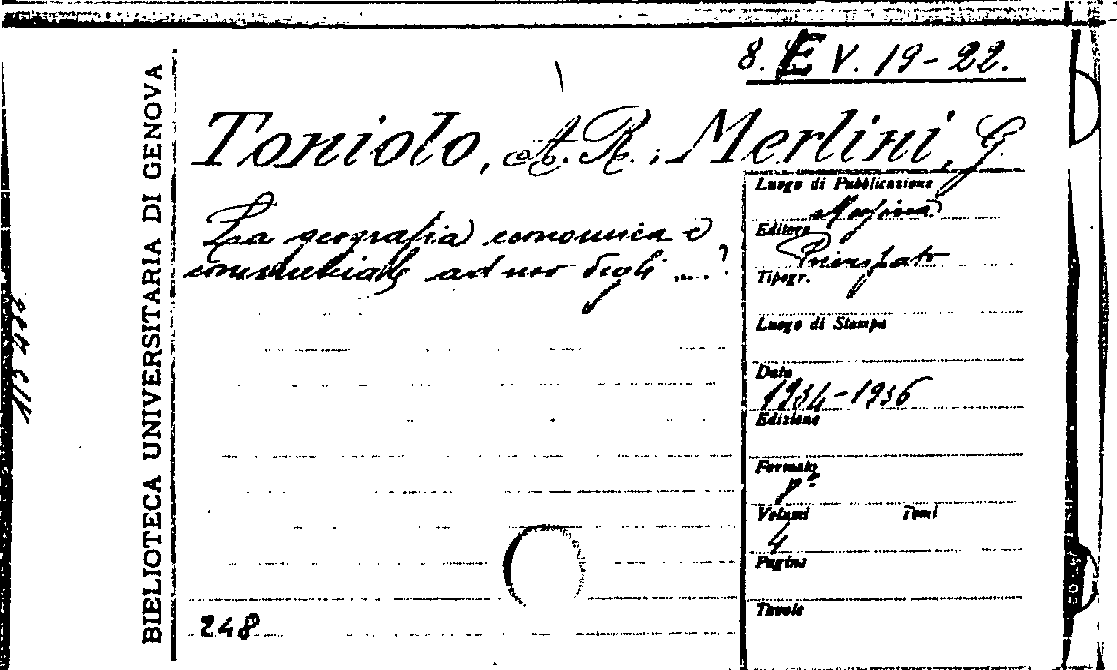 8. E V. 19-22.
Toniolo, A. R.; Merlini, G
La geografia economica e
commerciale ad uso degli ....
Luogo di Pubblicazione
Messina
Editore
Principato
Tipogr.
Luogo di Stampa
Data
1934-1936
Edizione
Formato
Volumi Tomi
4
Pagine
Tavole
248
BIBLIOTECA UNIVERSITARIA DI GENOVA